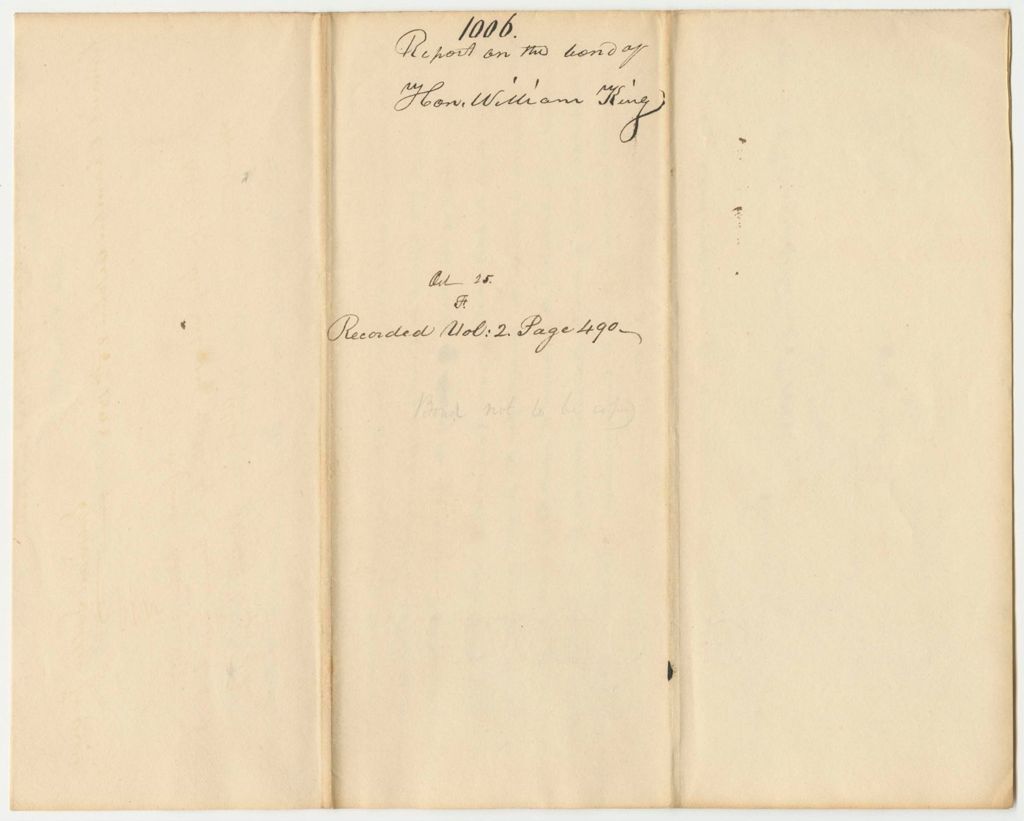 1006.
Report on the bond of
Hon. William King
Oct 25.
F.
Recorded Vol: 2. Page 490
Bond not to be copied